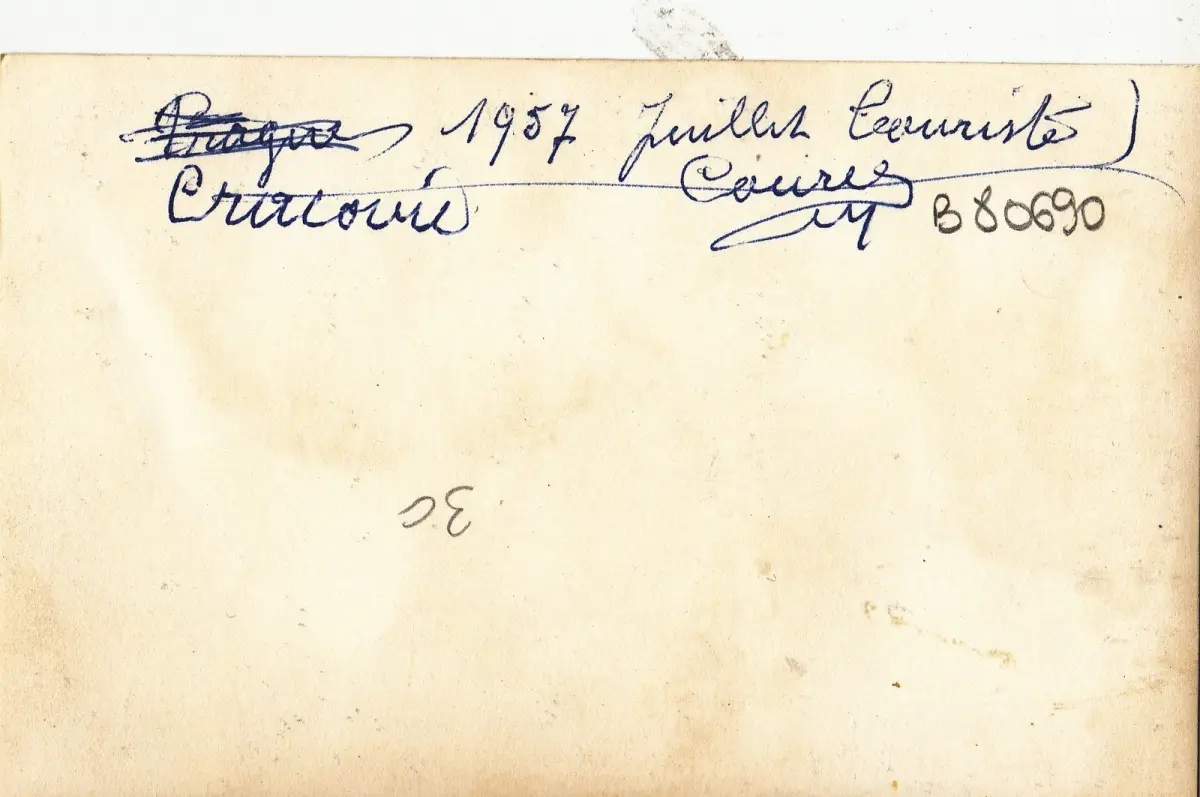 Prague 1957 Juillet Touristé)
Cracovie
B 80690
3c